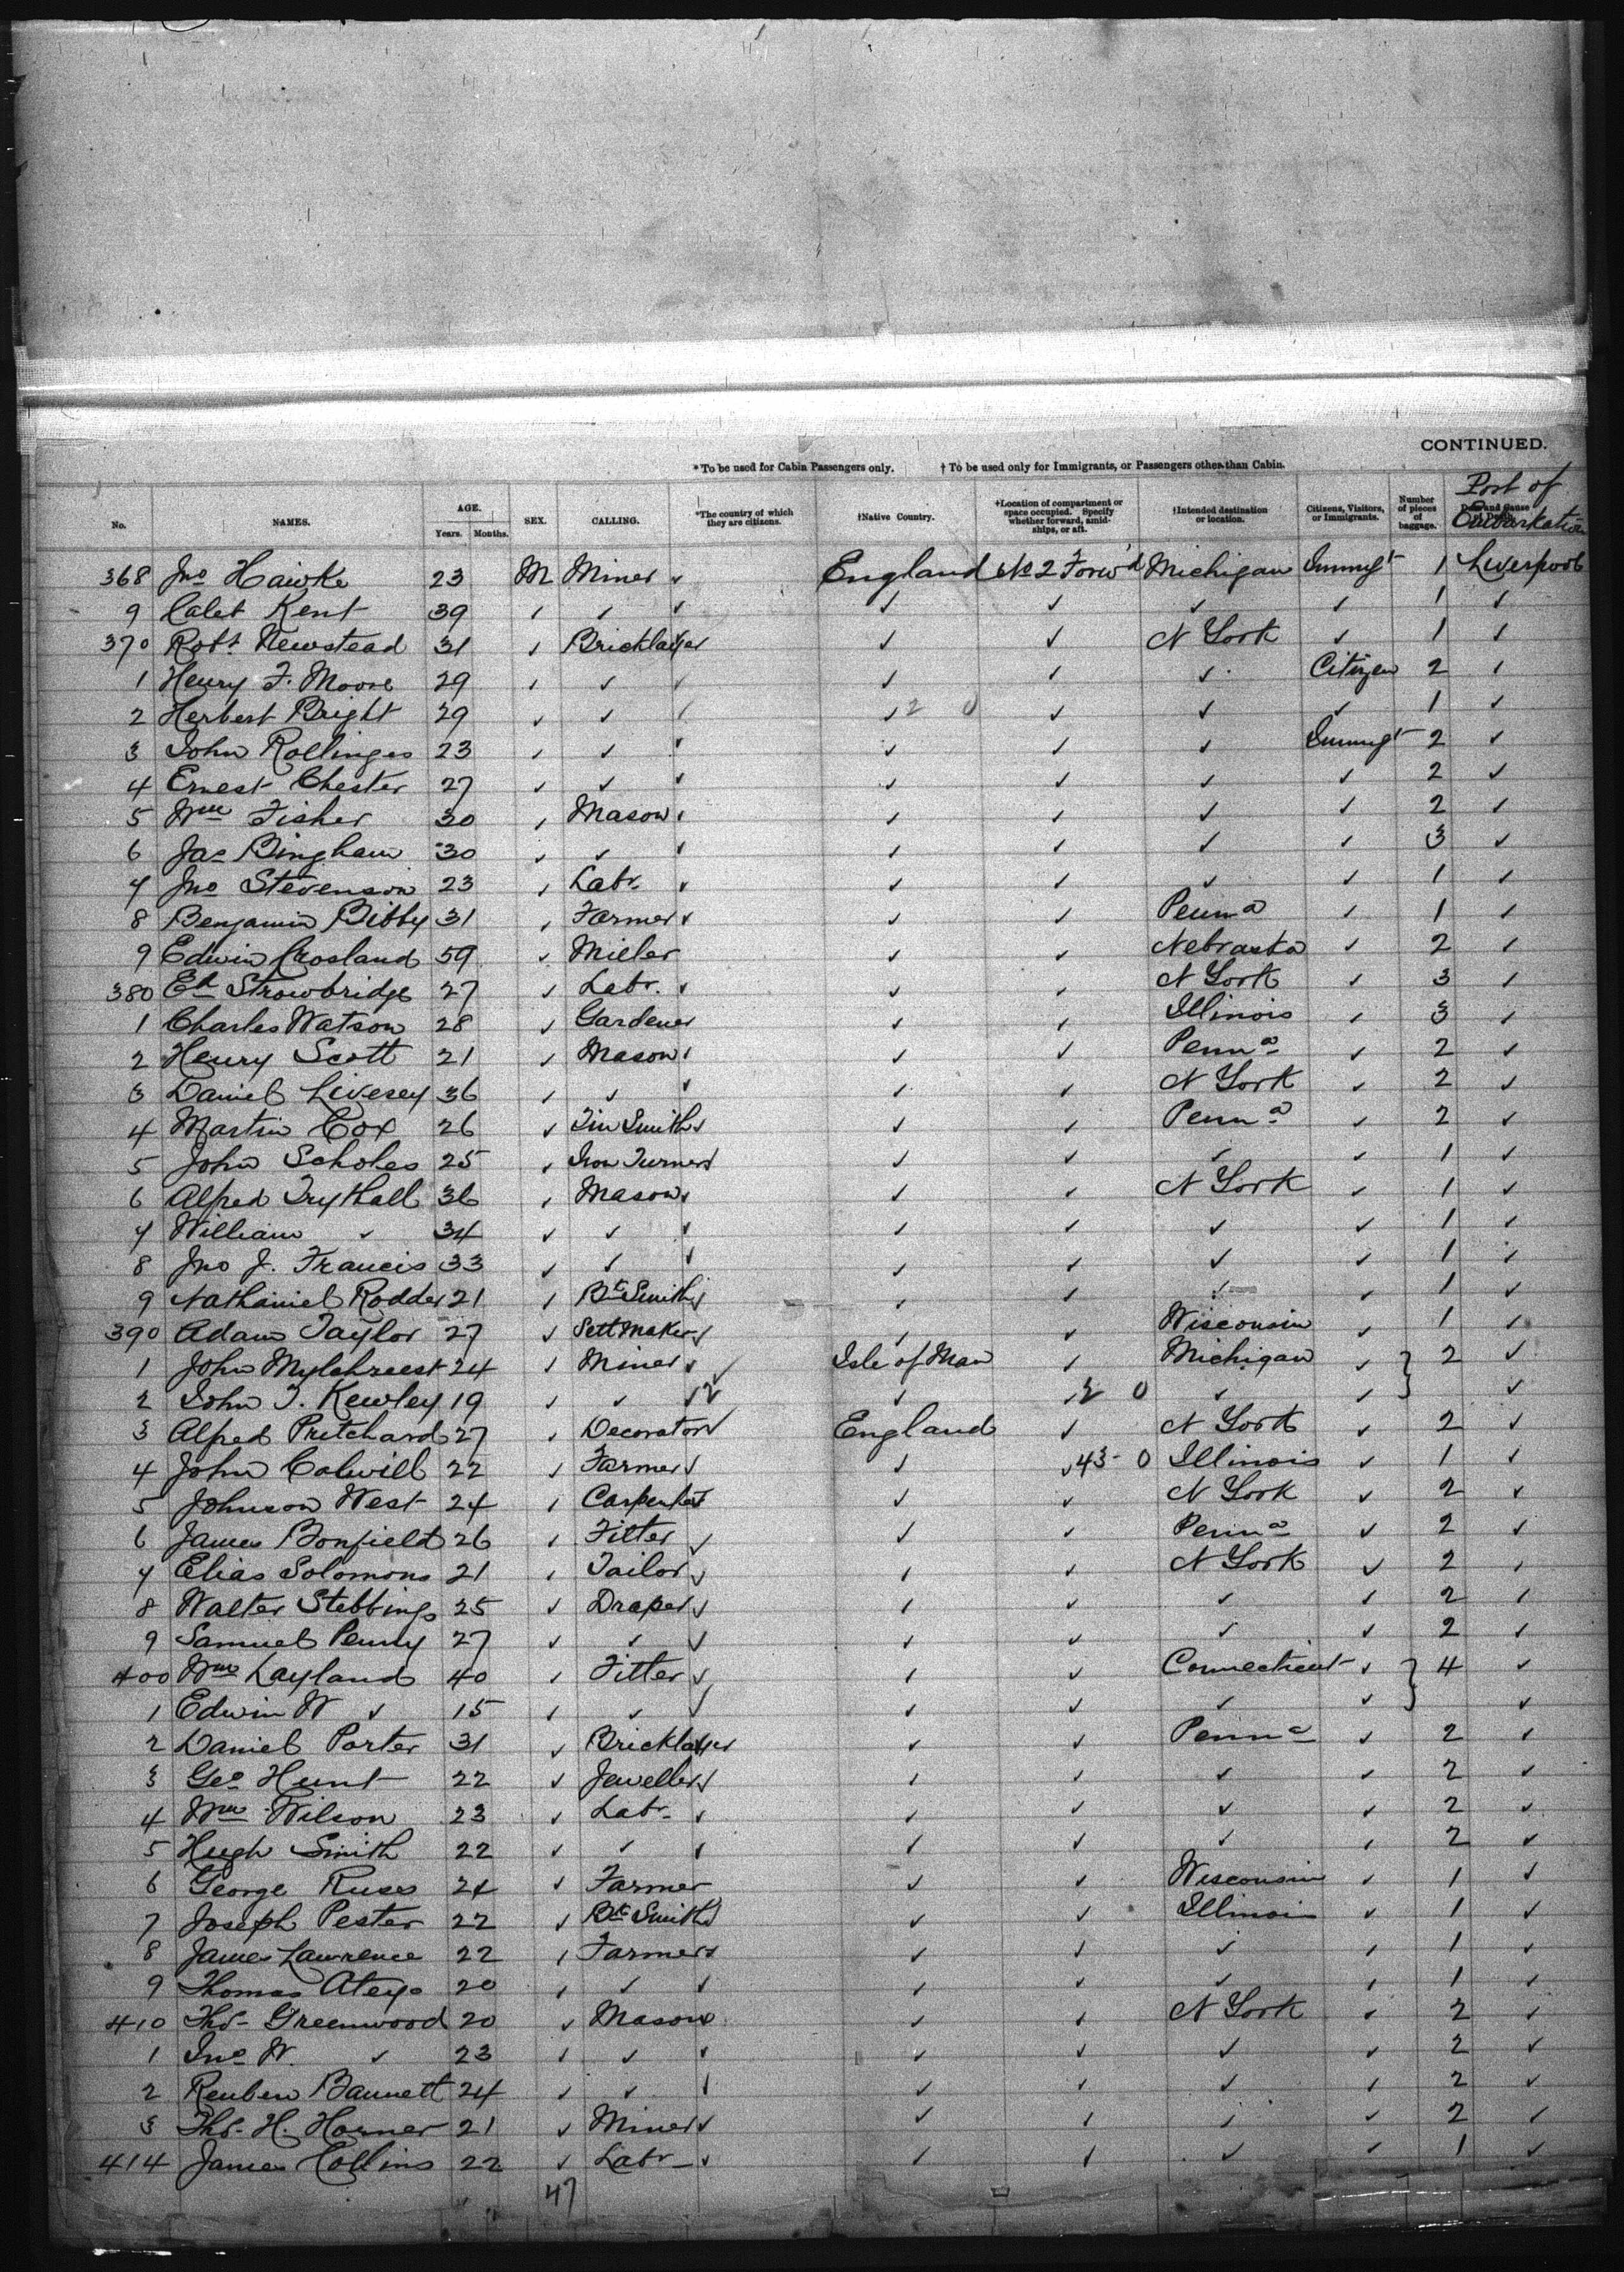 CONTINUED.
*To be used for Cabin Passengers only. † To be used only for Immigrants, or Passengers other than Cabin.
No. NAMES. AGE. Years. Months. SEX. CALLING. *The country of which they are citizens. †Native Country. †Location of compartment or space occupied. Specify whether forward, amidships, or aft. †Intended destination or location. Citizens, Visitors, or Immigrants. Number of pieces of baggage. Port of Embarkation
368 Jno Hawke 23 M Miner ✓ England No 2 Forw'd Michigan Immigt 1 Liverpool
9 Caleb Kent 39 ✓ ✓ ✓ ✓ ✓ ✓ ✓ 1 ✓
370 Robt Newstead 31 ✓ Bricklayer ✓ ✓ N York ✓ 1 ✓
1 Henry F. Moore 29 ✓ ✓ ✓ ✓ ✓ ✓ Citizen 2 ✓
2 Herbert Bright 29 ✓ ✓ ✓ ✓ 2 0 ✓ ✓ ✓ 1 ✓
3 John Rollinges 23 ✓ ✓ ✓ ✓ ✓ ✓ Immigt 2 ✓
4 Ernest Chester 27 ✓ ✓ ✓ ✓ ✓ ✓ ✓ 2 ✓
5 Wm Fisher 30 ✓ Mason ✓ ✓ ✓ ✓ ✓ 2 ✓
6 Jas Bingham 30 ✓ ✓ ✓ ✓ ✓ ✓ ✓ 3 ✓
7 Jno Stevenson 23 ✓ Labr ✓ ✓ ✓ ✓ ✓ 1 ✓
8 Benjamin Bibby 31 ✓ Farmer ✓ ✓ ✓ Penna ✓ 1 ✓
9 Edwin Crosland 59 ✓ Miller ✓ ✓ Nebraska ✓ 2 ✓
380 Ed Strowbridge 27 ✓ Labr. ✓ ✓ ✓ N York ✓ 3 ✓
1 Charles Watson 28 ✓ Gardener ✓ ✓ Illinois ✓ 3 ✓
2 Henry Scott 21 ✓ Mason ✓ ✓ ✓ Penna ✓ 2 ✓
3 Daniel Livesey 36 ✓ ✓ ✓ ✓ ✓ N York ✓ 2 ✓
4 Martin Cox 26 ✓ Tin Smith ✓ ✓ ✓ Penna ✓ 2 ✓
5 John Scholes 25 ✓ Iron Turner ✓ ✓ ✓ ✓ ✓ 1 ✓
6 Alfred Trythall 36 ✓ Mason ✓ ✓ ✓ N York ✓ 1 ✓
7 William ✓ 34 ✓ ✓ ✓ ✓ ✓ ✓ ✓ 1 ✓
8 Jno J. Francis 33 ✓ ✓ ✓ ✓ ✓ ✓ ✓ 1 ✓
9 Nathaniel Rodder 21 ✓ Bk Smith ✓ ✓ ✓ ✓ ✓ 1 ✓
390 Adam Taylor 27 ✓ Sett Maker ✓ ✓ ✓ Wisconsin ✓ 1 ✓
1 John Mylchreest 24 ✓ Miner ✓ ✓ Isle of Man ✓ Michigan ✓ } 2 ✓
2 John T. Kewley 19 ✓ ✓ ✓ 2 ✓ ✓ 2 0 ✓ ✓ } ✓
3 Alfred Pritchard 27 ✓ Decorator ✓ England ✓ N York ✓ 2 ✓
4 John Colwill 22 ✓ Farmer ✓ ✓ ✓ 43- 0 Illinois ✓ 1 ✓
5 Johnson West 24 ✓ Carpenter ✓ ✓ ✓ N York ✓ 2 ✓
6 James Bonfield 26 ✓ Fitter ✓ ✓ ✓ Penna ✓ 2 ✓
7 Elias Solomons 21 ✓ Tailor ✓ ✓ ✓ N York ✓ 2 ✓
8 Walter Stebbings 25 ✓ Draper ✓ ✓ ✓ ✓ ✓ 2 ✓
9 Samuel Penny 27 ✓ ✓ ✓ ✓ ✓ ✓ ✓ 2 ✓
400 Wm Layland 40 ✓ Fitter ✓ ✓ ✓ Connecticut ✓ } 4 ✓
1 Edwin W ✓ 15 ✓ ✓ ✓ ✓ ✓ ✓ ✓ } ✓
2 Daniel Porter 31 ✓ Bricklayer ✓ ✓ Penna ✓ 2 ✓
3 Geo Hunt 22 ✓ Jeweller ✓ ✓ ✓ ✓ ✓ 2 ✓
4 Wm Wilson 23 ✓ Labr ✓ ✓ ✓ ✓ ✓ 2 ✓
5 Hugh Smith 22 ✓ ✓ ✓ ✓ ✓ ✓ ✓ 2 ✓
6 George Ruses 24 ✓ Farmer ✓ ✓ Wisconsin ✓ 1 ✓
7 Joseph Pester 22 ✓ Bk Smith ✓ ✓ ✓ Illinois ✓ 1 ✓
8 James Lawrence 22 ✓ Farmer ✓ ✓ ✓ ✓ ✓ 1 ✓
9 Thomas Ateyo 20 ✓ ✓ ✓ ✓ ✓ ✓ ✓ 1 ✓
410 Thos Greenwood 20 ✓ Mason ✓ ✓ ✓ N York ✓ 2 ✓
1 Jno W. ✓ 23 ✓ ✓ ✓ ✓ ✓ ✓ ✓ 2 ✓
2 Reuben Bannett 24 ✓ ✓ ✓ ✓ ✓ ✓ ✓ 2 ✓
3 Thos H. Horner 21 ✓ Miner ✓ ✓ ✓ ✓ ✓ 2 ✓
414 James Collins 22 ✓ Labr ✓ ✓ ✓ ✓ ✓ 1 ✓
47